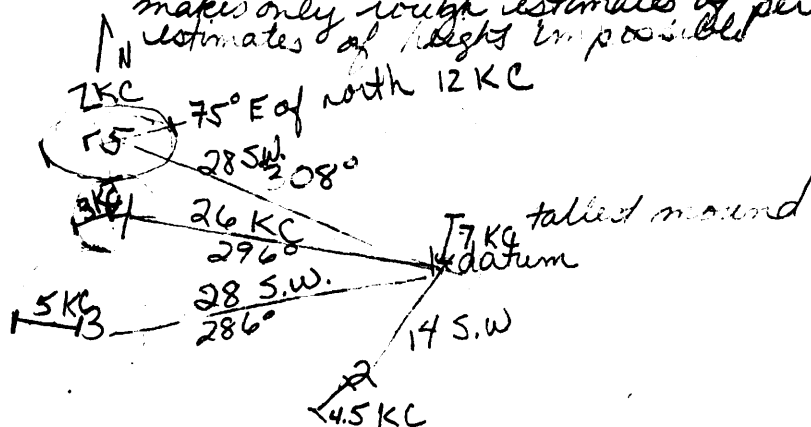 makes only rough estimates of per
estimates of height impossible
N
7KC
75° E of north 12 KC
5
28 S.W.
308°
3KC
26 KC
296°
7 KC tallest mound
datum
28 S.W.
286°
5 KC
3
14 S.W
2
4.5 KC